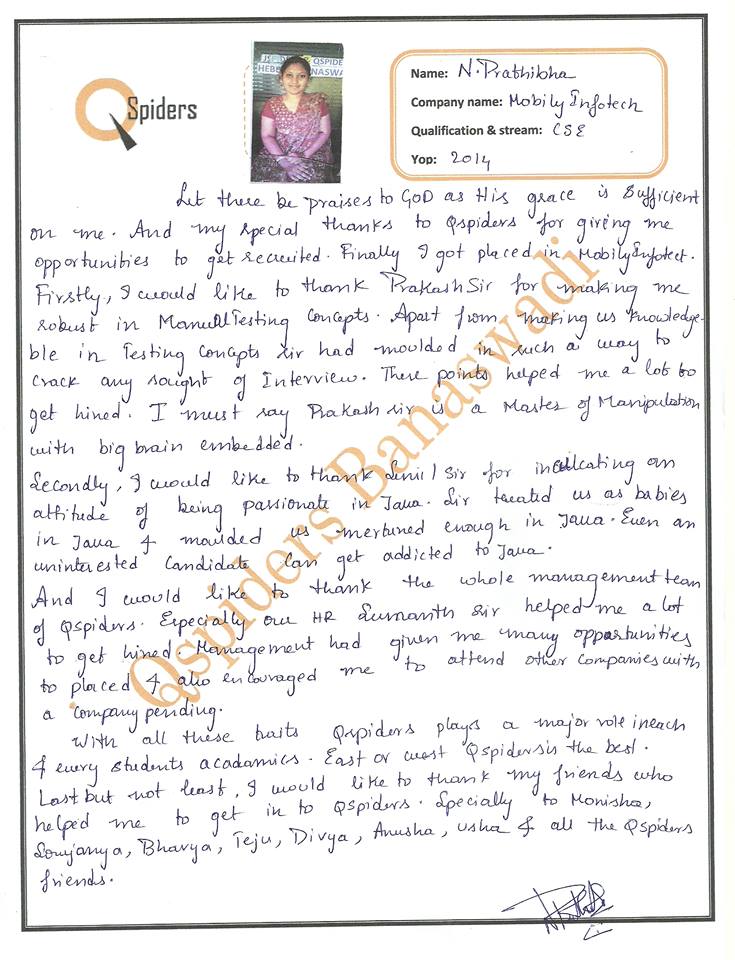 QSpiders
JSPIDERS QSPIDE
HEBB NASWA
Name: N. Prathibha
Company name: Mobily Infotech
Qualification & stream: CSE
Yop: 2014
Let there be praises to GOD as His grace is Sufficient
on me. And my special thanks to Qspiders for giving me
opportunities to get recruited. Finally I got placed in Mobily Infotect.
Firstly, I would like to thank Prakash Sir for making me
robust in Manual Testing Concepts. Apart from making us knowledge-
ble in Testing Concepts sir had moulded in such a way to
crack any sought of Interview. These points helped me a lot to
get hired. I must say Prakash sir is a Master of Manipulation
with big brain embedded.
Secondly, I would like to thank Sunil Sir for inculcating an
attitude of being passionate in Java. Sir treated us as babies
in Java & moulded us mertured enough in Java. Even an
uninterested Candidate can get addicted to Java.
And I would like to thank the whole management team
of Qspiders. Especially our HR Sumanth sir helped me a lot
to get hired. Management had given me many opportunities
to placed & also encouraged me to attend other companies with
a company pending.
With all these traits Qspiders plays a major role in each
& every students acadamics. East or west Qspiders is the best.
Last but not least, I would like to thank my friends who
helped me to get in to QSpiders. Specially to Monisha,
Soujanya, Bhavya, Teju, Divya, Anusha, Usha & all the QSpiders
friends.
Qspiders Banaswadi